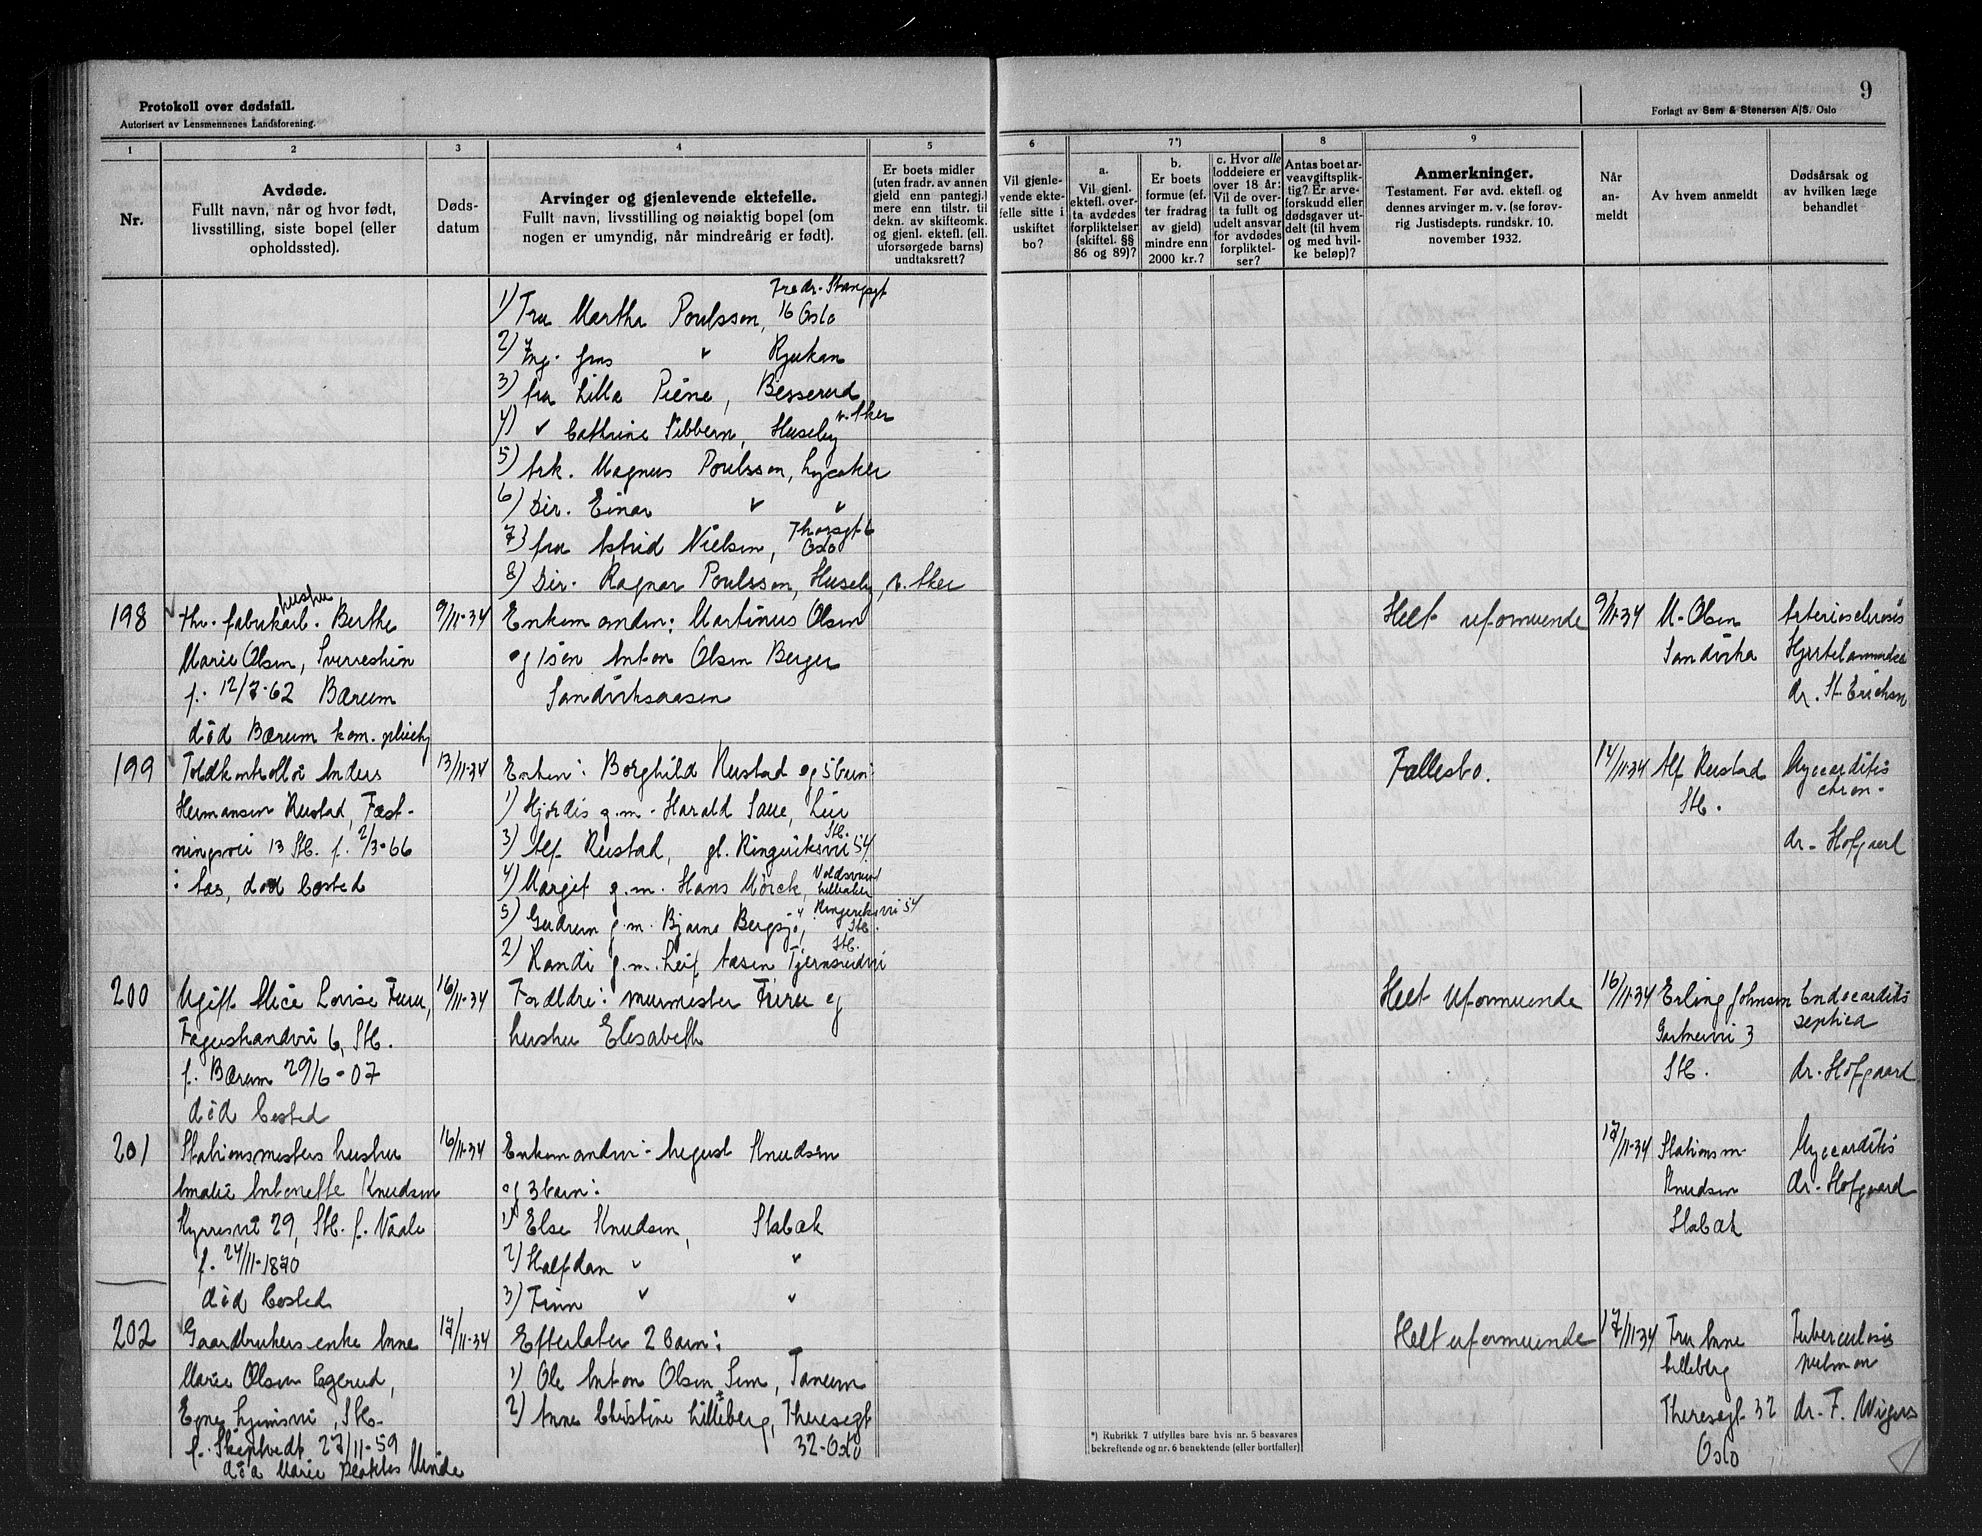 Protokoll over dødsfall.
Autorisert av Lensmennenes Landsforening.
9
Forlagt av Sem & Stenersen A/S. Oslo
1
2
3
4
5
6
7*)
8
9
Nr.
Avdøde.
Fullt navn, når og hvor født,
livsstilling, siste bopel (eller
opholdssted).
Døds-
datum
Arvinger og gjenlevende ektefelle.
Fullt navn, livsstilling og nøiaktig bopel (om
nogen er umyndig, når mindreårig er født).
Er boets midler
(uten fradr. av annen
gjeld enn pantegj.)
mere enn tilstr. til
dekn. av skifteomk.
og gjenl. ektefl. (ell.
uforsørgede barns)
undtaksrett?
Vil gjenle-
vende ekte-
felle sitte i
uskiftet
bo?
a.
Vil gjenl.
ektefl. over-
ta avdødes
forpliktelser
(skiftel. §§
86 og 89)?
b.
Er boets
formue (ef-
ter fradrag
av gjeld)
mindre enn
2000 kr.?
c. Hvor alle
loddeiere er
over 18 år:
Vil de over-
ta fullt og
udelt ansvar
for avdødes
forpliktel-
ser?
Antas boet ar-
veavgiftsplik-
tig? Er arve-
forskudd eller
dødsgaver ut-
delt (til hvem
og med hvil-
ke beløp)?
Anmerkninger.
Testament. Før avd. ektefl. og
dennes arvinger m. v. (se forøv-
rig Justisdepts. rundskr. 10.
november 1932.
Når
an-
meldt
Av hvem anmeldt
Dødsårsak og
av hvilken læge
behandlet
Fredr. Stangsgt
1) Fru Martha Poulsson, 16 Oslo
2) Ing. Jens " Rjukan
3) fru Lilla Piene, Besserud
4) " Cathrine Sibbern, Huseby v. Aker
5) Ark. Magnus Poulsson, Lysaker
6) Dir. Einar " "
7) fru Astrid Nielsen, Thorsgt 6
Oslo
8) Dir. Ragnar Poulsson, Huseby, v. Aker
198
fhv. fabrikarb. hustru Berthe
Marie Olsen,
f. 12/7-62 Bærum
död Bærum kom. pleiehj
9/11-34
Enkemanden: Martinus Olsen
og 1 sön Anton Olsen Berger
Sandviksaasen
Helt uformuende
9/11-34
M. Olsen
Sandvika
Arteriosclerosis
dr. St. Erichsen
199
Toldkontrollör Anders
Hermansen Rustad, Fæst-
ningsvei 13 Stb. f. 2/3-66
i Aas, död bosted
13/11-34
Enken: Borghild Rustad og 5 barn:
1) Hjördis g.m. Harald Saue, Lier
3) Alf Rustad, gl. Ringeriksvei 54 Stb.
4) Margit g.m. Hans Mörck,
5) Gudrun g.m. Bjarne Bergsjö, Ringeriksvei 54
Stb.
2) Randi g.m. Leif Aasen Tjernsrudvei
Stb.
Fællesbo.
14/11-34
Alf Rustad
Stb.
Myocarditis
chron.
dr. Hofgaard
200
Ugift Alice Lovise Furu,
Fagerstrandvei 6, Stb.
f. Bærum 29/6-07
död bosted
16/11-34
Foreldre: murmester Furu og
hustru Elisabeth
Helt uformuende
16/11-34
Erling Johnsen
Gartnervei 3
Stb.
Endocarditis
septica
dr. Hofgaard
201
Stationsmesters hustru
Amalie Antonette Knudsen
Kyrresvei 29, Stb. f. Vaale
f. 24/11-1870
död bosted
16/11-34
Enkemanden: August Knudsen
og 3 barn:
1) Else Knudsen, Stabæk
2) Halfdan " "
3) Finn " "
17/11-34
Stationsm.
Knudsen
Stabæk
Myocarditis
dr. Hofgaard
202
Gaardbrukers enke Anne
Marie Olsen Egerud,
Egne hjemsvei, Stb.
f. Skiptvedt 27/11-59
död Marie Plahtes Minde
17/11-34
Efterlater 2 barn:
1) Ole Anton Olsen Sem, Tanum
2) Anne Christine Lilleberg, Theresegt
32-Oslo
Helt uformuende
17/11-34
Fru Anne
Lilleberg
Theresegt. 32
Oslo
Tuberculosis
pulmon
dr. F. Wigers
*) Rubrikk 7 utfylles bare hvis nr. 5 besvares
bekreftende og nr. 6 benektende (eller bortfaller)